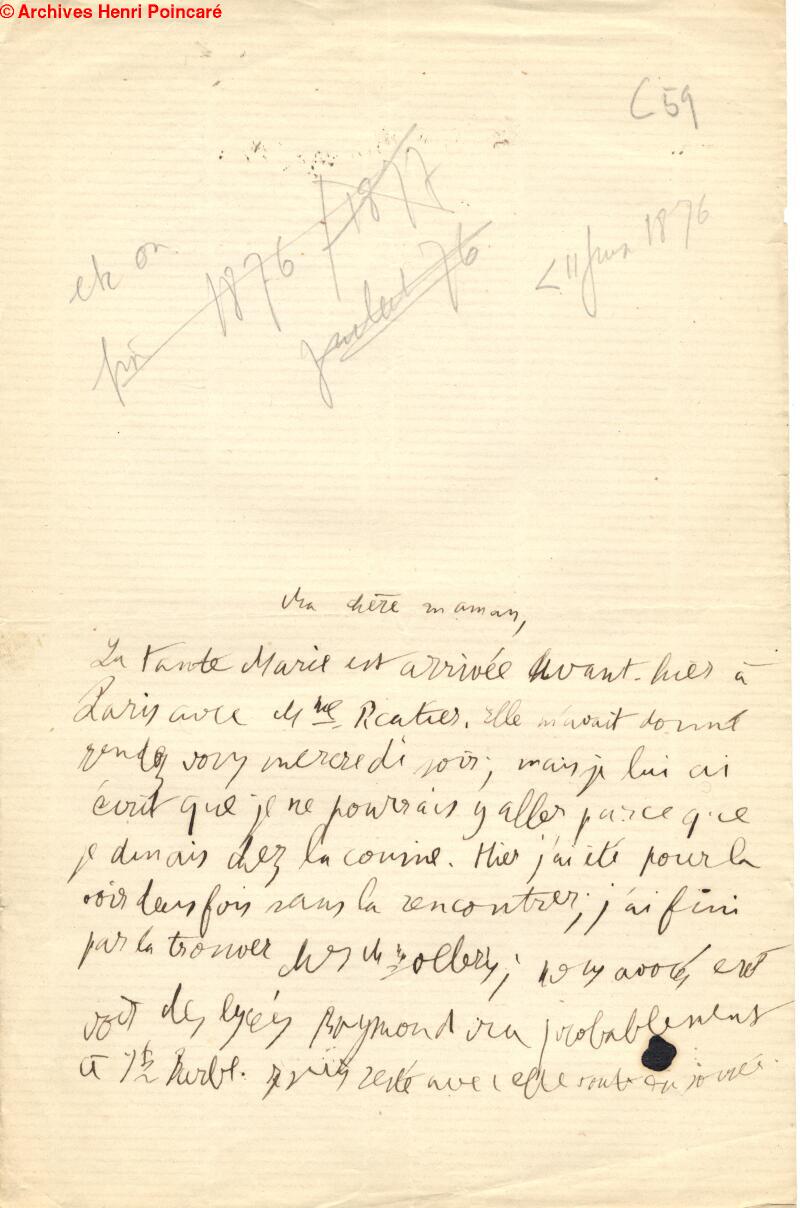 © Archives Henri Poincaré
C 59
1876 1877
76
< 11 1876
Ma chère maman,
La tante Marie est arrivée avant-hier à
Paris avec Mme Elle m'avait donné
rendez vous mercredi soir; mais je lui ai
écrit que je ne pourrais y aller parce que
je dinais chez la cousine. Hier j'ai été pour la
voir deux fois sans la rencontrer; j'ai fini
par la trouver chez Mme Ollery; nous avons
des lycées Raymond ira probablement
à Ste Barbe. je suis resté avec elle toute la soirée.